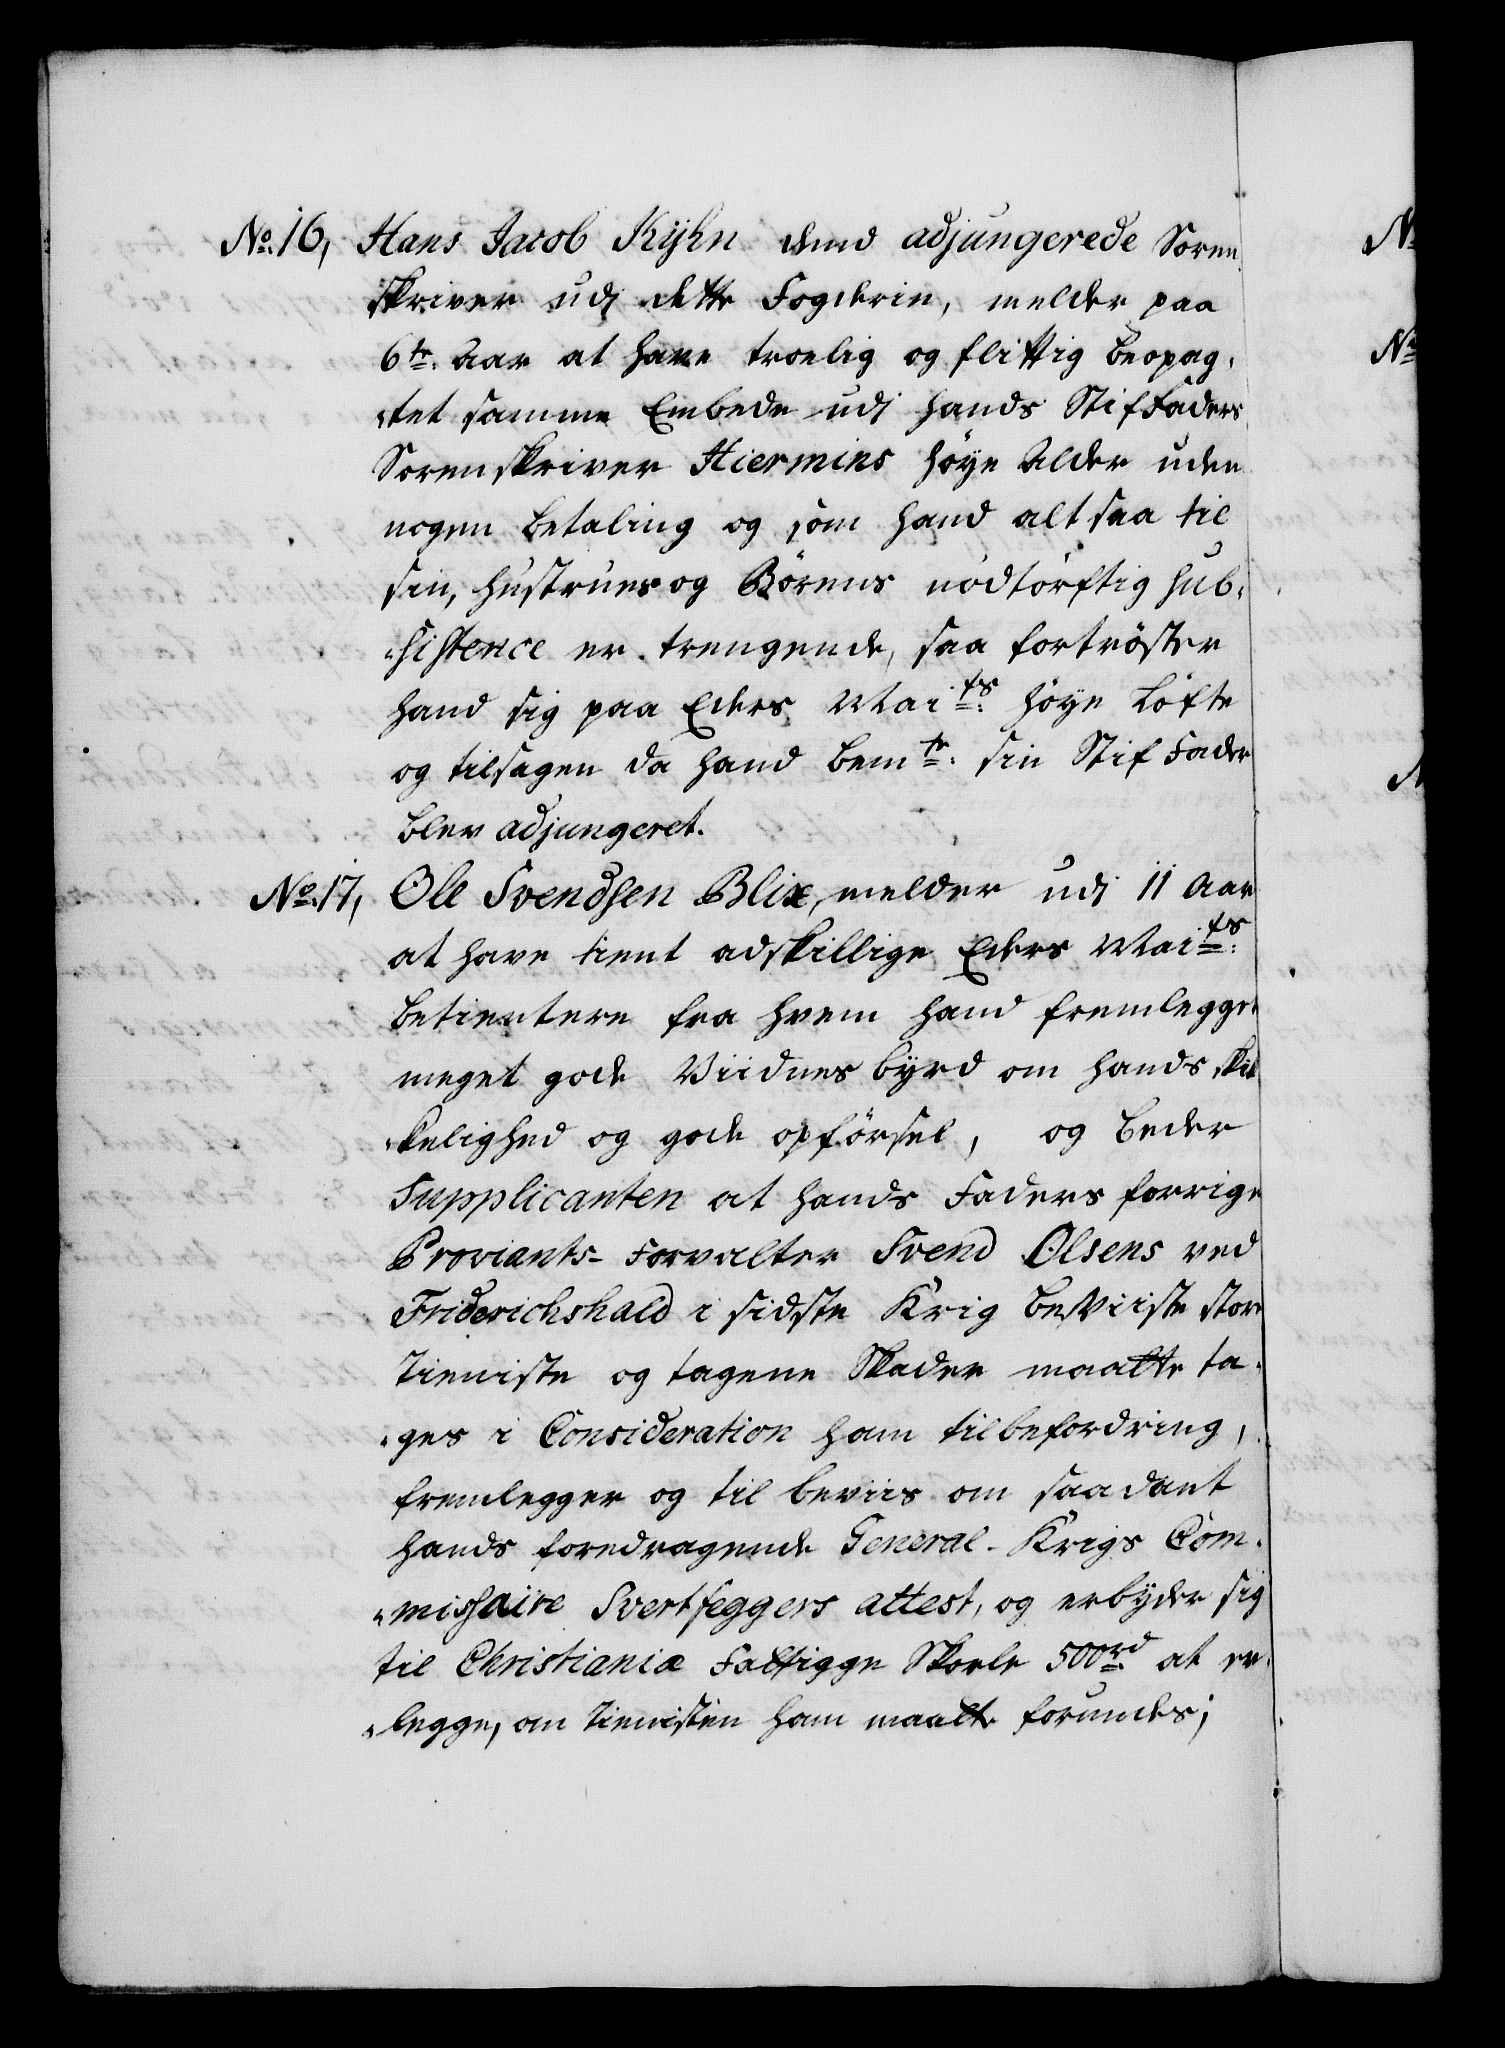 No. 16, Hans Jacob Kyhn dend adjungerede Soren
skriver udj dette Fogderie, melder paa
6te. Aar at have troelig og flittig beopag,
tet samme Embede udj hands StifFaders
Sorenskriver Hiermins høye Alder uden
nogen betaling og som hand altsaa til
sin, hustrues og Børens nødtørftig sub,
sistence er trengende, saa fortrøster
hand sig paa Eders Maits. høye Løfte
og tilsagen da hand bemte. sin Stif Fader
blev adjungeret.
No. 17, Ole Svendsen Blix, melder udj 11 Aar
at have tient adskillige Eders Maits.
betientere fra hvem hand fremlegger
meget gode Viidnesbyrd om hands skik
kelighed og gode opførsel, og beder
Supplicanten at hands Faders forrige
Proviants-Forvalter Svend Olsens ved
Friderichshald i sidste Krig beviiste store
tieniste og tagene Skader maatte ta,
ges i Consideration ham til befordring,
fremlegger og til beviis om saadant
hands foredragende General-Krigs Com,
missaire Svertfeggers attest, og erbyder sig
til Christianiæ Fattigge Skoele 500rd at er,
legge, om tienisten ham maatte forundes;
No
No
N